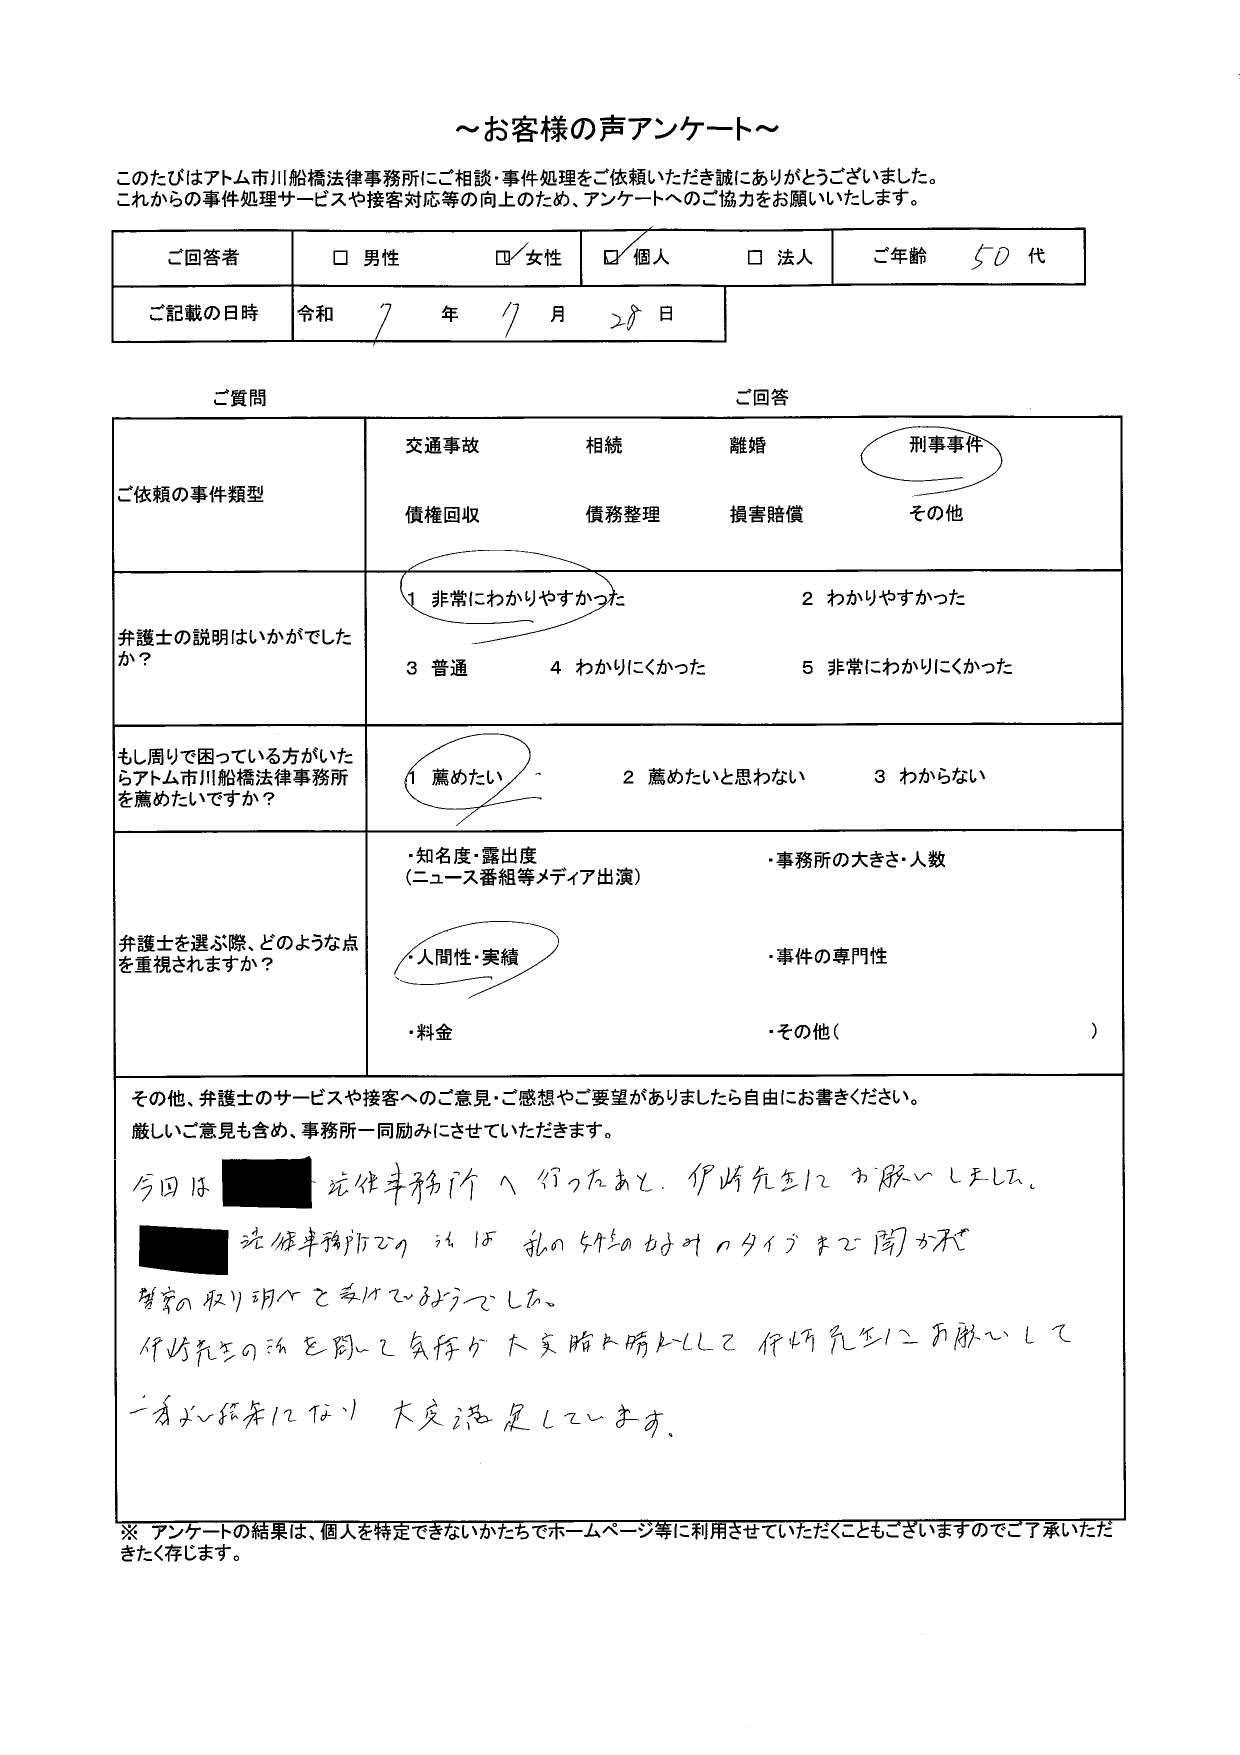 ～お客様の声アンケート～
このたびはアトム市川船橋法律事務所にご相談・事件処理をご依頼いただき誠にありがとうございました。
これからの事件処理サービスや接客対応等の向上のため、アンケートへのご協力をお願いいたします。
ご回答者 □ 男性 □ 女性 □ 個人 □ 法人 ご年齢 50 代
ご記載の日時 令和 7 年 7 月 28 日
ご質問 ご回答
ご依頼の事件類型
交通事故 相続 離婚 刑事事件
債権回収 債務整理 損害賠償 その他
弁護士の説明はいかがでした
か？
1 非常にわかりやすかった 2 わかりやすかった
3 普通 4 わかりにくかった 5 非常にわかりにくかった
もし周りで困っている方がいた
らアトム市川船橋法律事務所
を薦めたいですか？
1 薦めたい 2 薦めたいと思わない 3 わからない
弁護士を選ぶ際、どのような点
を重視されますか？
・知名度・露出度
（ニュース番組等メディア出演）
・事務所の大きさ・人数
・人間性・実績 ・事件の専門性
・料金 ・その他（ ）
その他、弁護士のサービスや接客へのご意見・ご感想やご要望がありましたら自由にお書きください。
厳しいご意見も含め、事務所一同励みにさせていただきます。
今回は 法律事務所へ行ったあと、伊崎先生にお願いしました。
法律事務所での話は私の好みのタイプまで聞かれ
警察の取り調べを受けているようでした。
伊崎先生の話を聞いて気持が大変晴れ晴れとして伊崎先生にお願いして
一番よい結果になり 大変満足しています。
※ アンケートの結果は、個人を特定できないかたちでホームページ等に利用させていただくこともございますのでご了承いただ
きたく存じます。